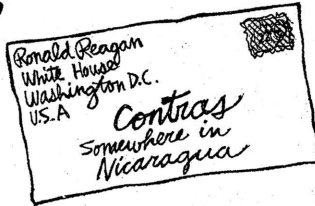 Ronald Reagan
White House
Washington D.C.
U.S.A
Contras
Somewhere in
Nicaragua